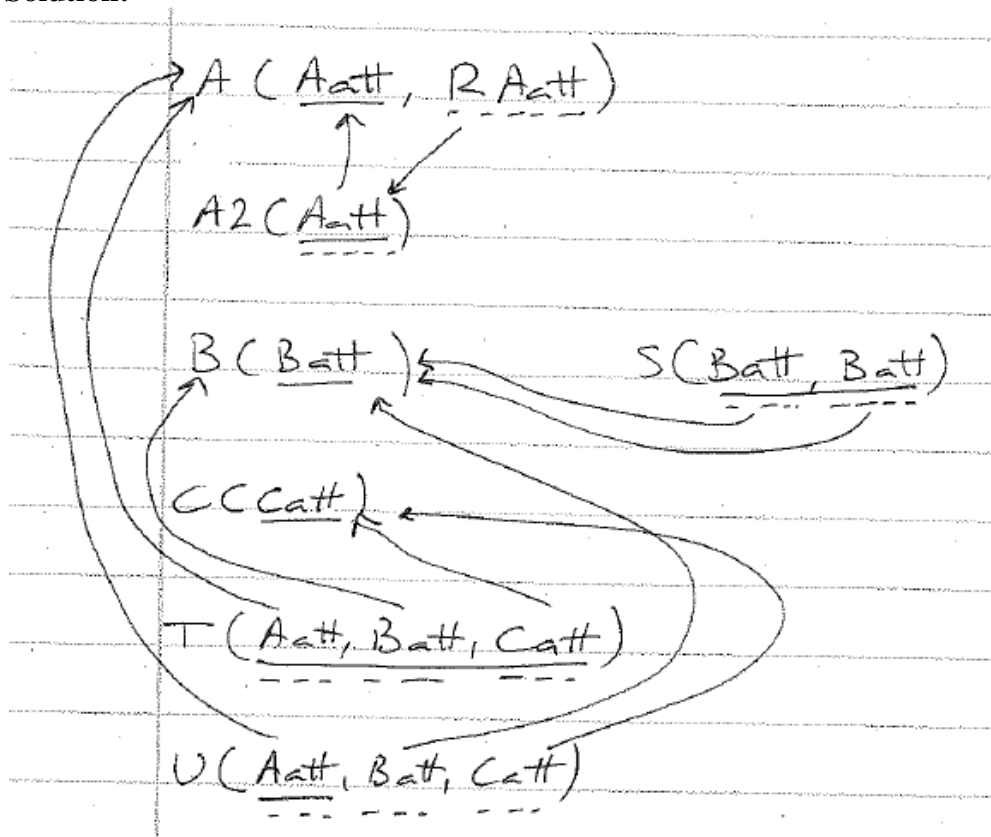 Solution:
A (Aatt, RAatt)
A2 (Aatt)
B (Batt) S(Batt, Batt)
C(Catt)
T (Aatt, Batt, Catt)
U (Aatt, Batt, Catt)